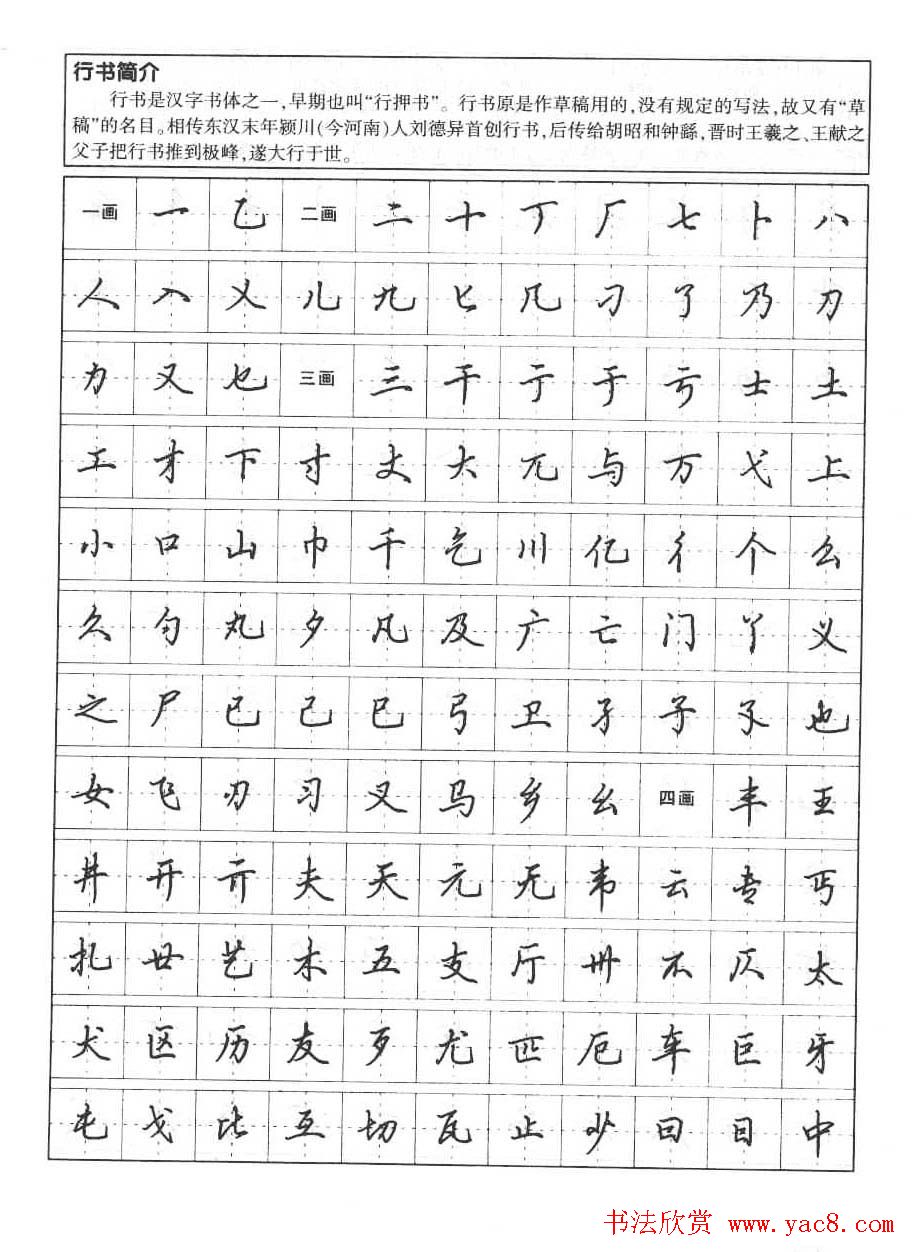 行书简介
行书是汉字书体之一,早期也叫“行押书”。行书原是作草稿用的,没有规定的写法,故又有“草
稿”的名目。相传东汉末年颍川(今河南)人刘德异首创行书,后传给胡昭和钟繇,晋时王羲之、王献之
父子把行书推到极峰,遂大行于世。
一画 一 乙 二画 二 十 丁 厂 七 卜 八
人 入 乂 儿 九 匕 几 刁 了 乃 刀
力 又 乜 三画 三 干 亍 于 亏 士 土
工 才 下 寸 丈 大 兀 与 万 弋 上
小 口 山 巾 千 乞 川 亿 彳 个 么
久 勺 丸 夕 凡 及 广 亡 门 丫 义
之 尸 已 己 巳 弓 卫 孑 子 孓 也
女 飞 刃 习 叉 马 乡 幺 四画 丰 王
井 开 亓 夫 天 元 无 韦 云 专 丐
扎 廿 艺 木 五 支 厅 卅 不 仄 太
犬 区 历 友 歹 尤 匹 厄 车 巨 牙
屯 戈 比 互 切 瓦 止 少 曰 日 中
书法欣赏 www.yac8.com